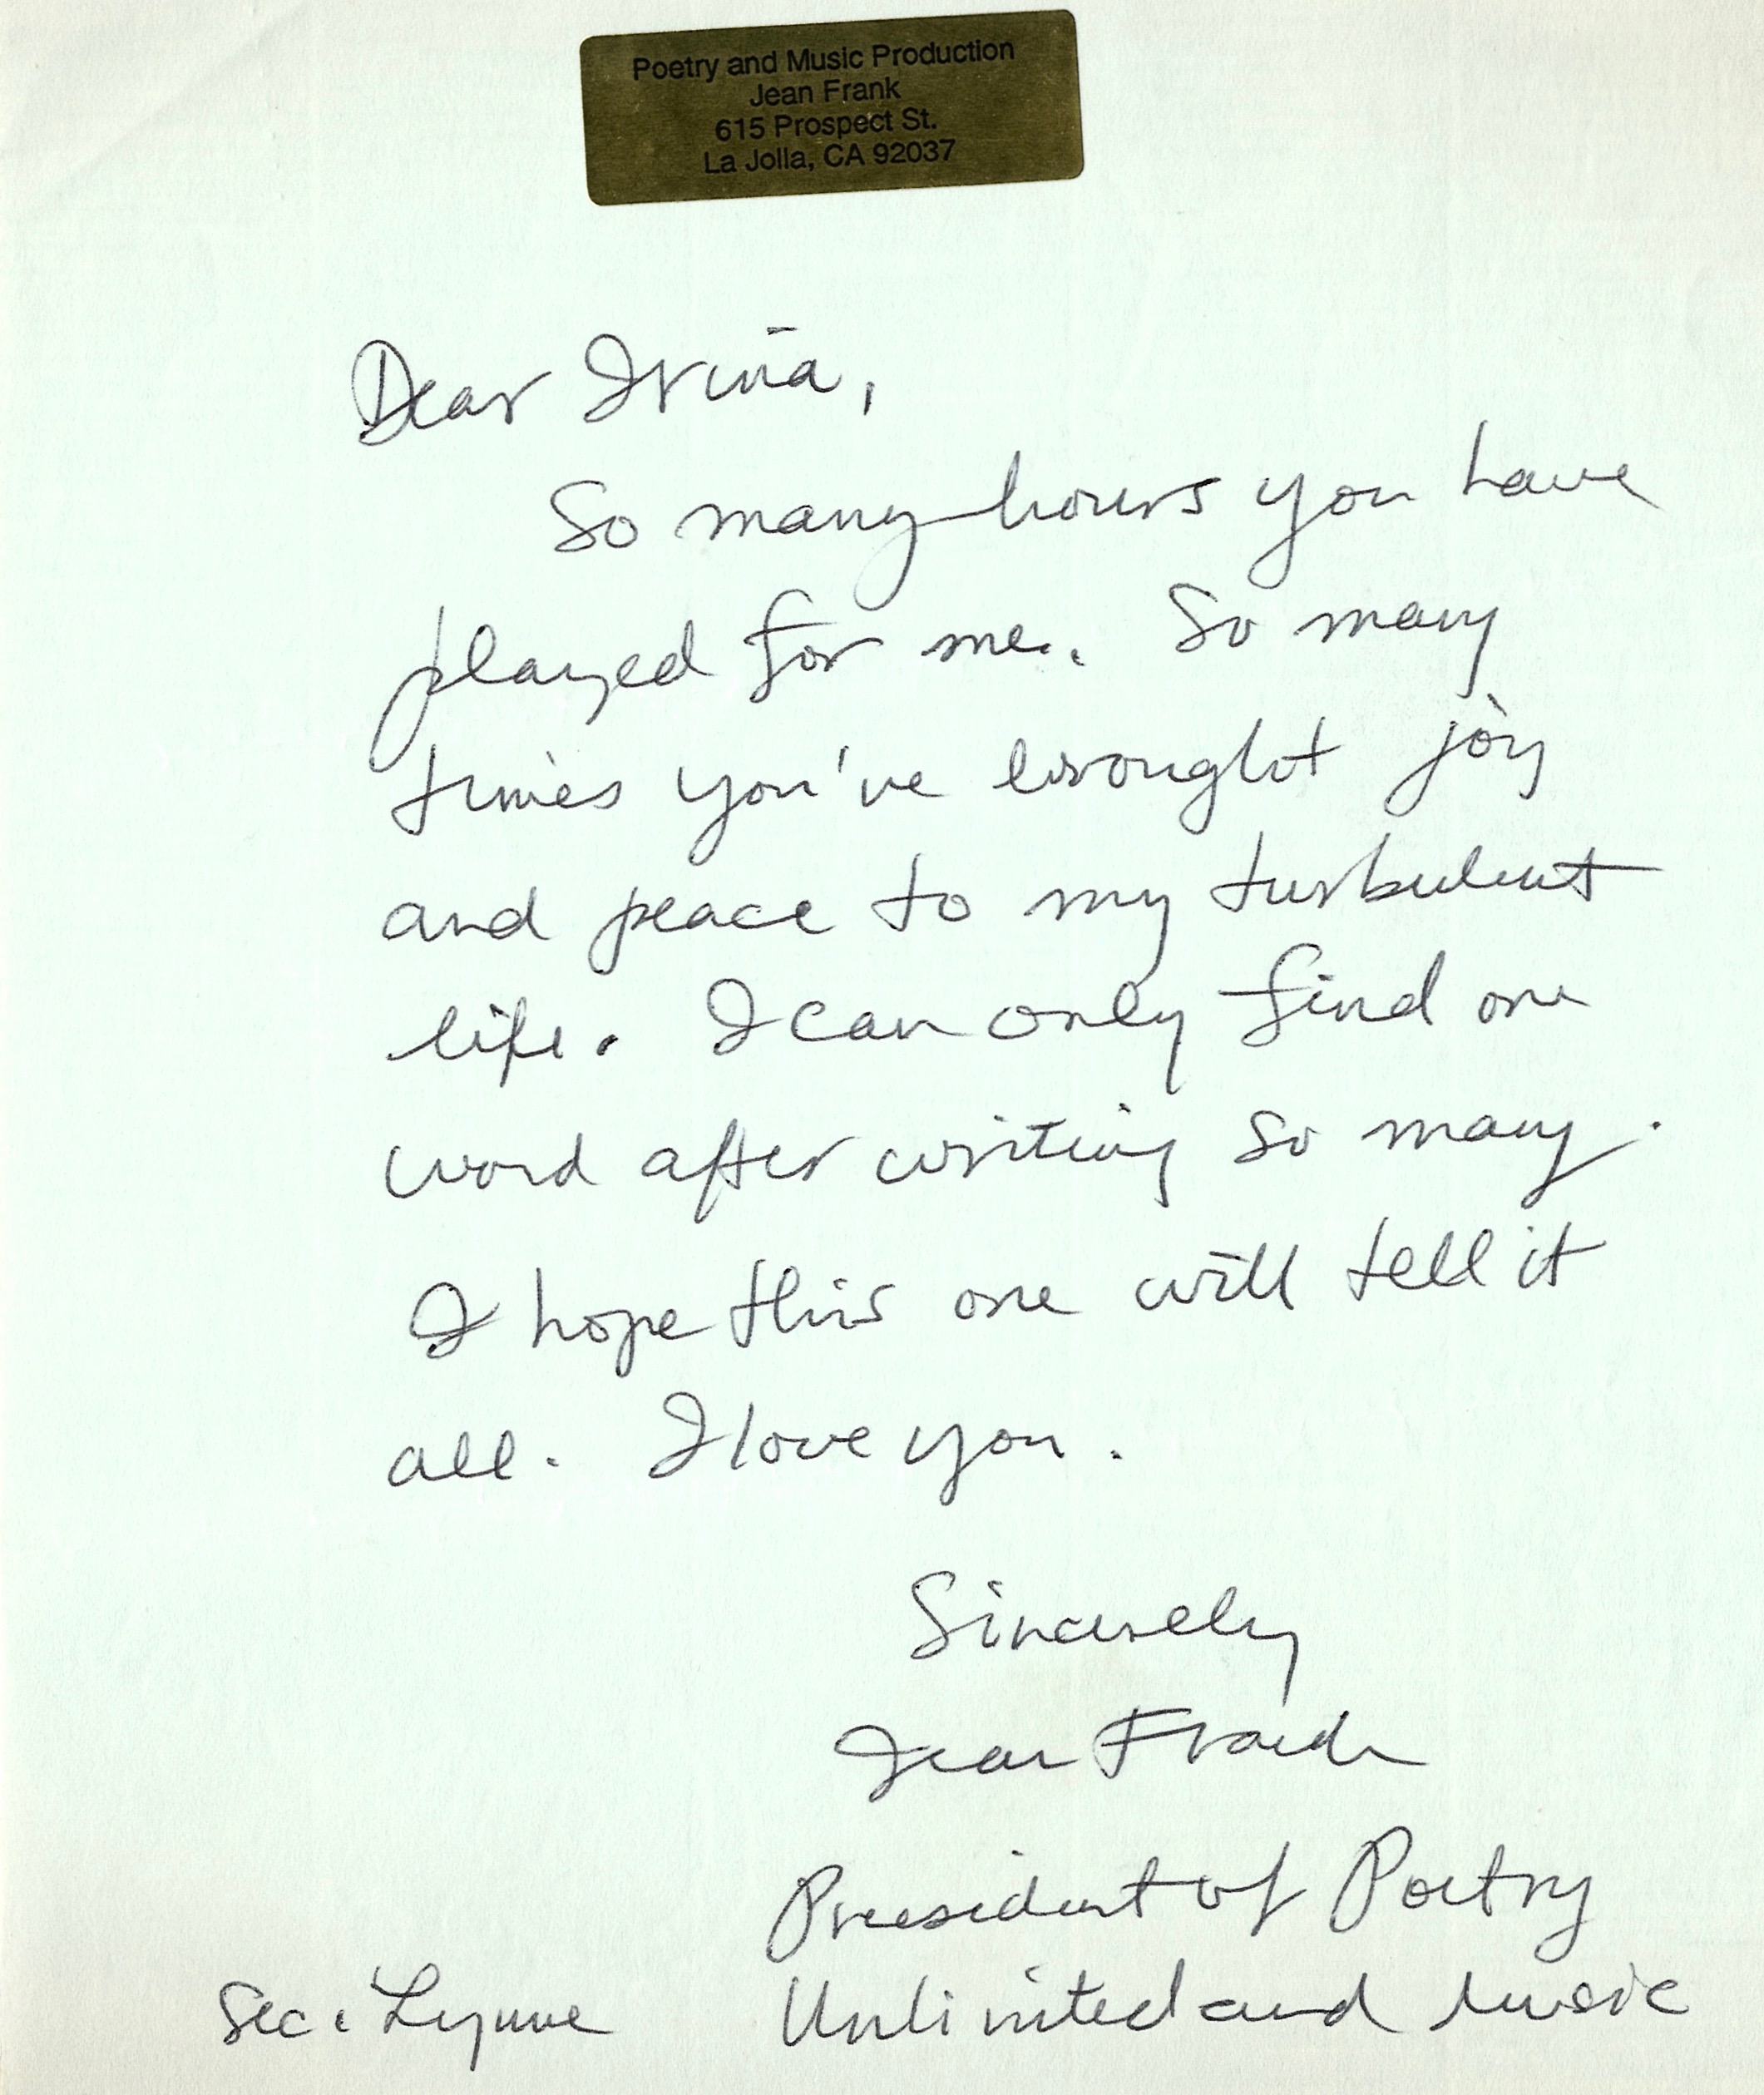 Poetry and Music Production
Jean Frank
615 Prospect St.
La Jolla, CA 92037
Dear Irina,
So many hours you have
played for me. So many
times you've brought joy
and peace to my turbulent
life. I can only find one
word after writing so many.
I hope this one will tell it
all. I love you.
Sincerely
Jean Frank
President of Poetry
Unlimited and Music
Sec: Lynne